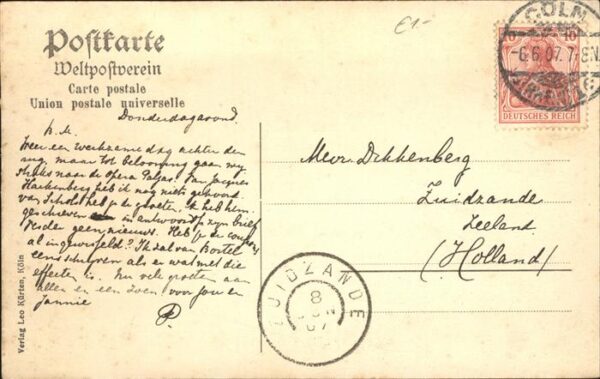 Postkarte
Weltpostverein
Carte postale
Union postale universelle
€1-
CÖLN
-6.6.07.7-8N.
10 10
DEUTSCHES REICH
Donderdagavond.
Weer een werkzame dag achter den
rug, maar tot belooning gaan wij
straks naar de opera Paljas. Van Jacques
Hackenberg heb ik nog niets gehoord
van Schols heb je de groeten, ik heb hem
geschreven in antwoord op zijn brief
Verder geen nieuws. Heb je de coupons
al ingewisseld? Ik zal van Bortel
eens schrijven als er wat met die
effecten is. Nu vele groeten aan
allen en een zoen voor jou en
Jannie
P
Mevr Dekkenberg
Zuidzande
Zeeland
(Holland)
ZUIDZANDE
8
07
Verlag Leo Kürten, Köln